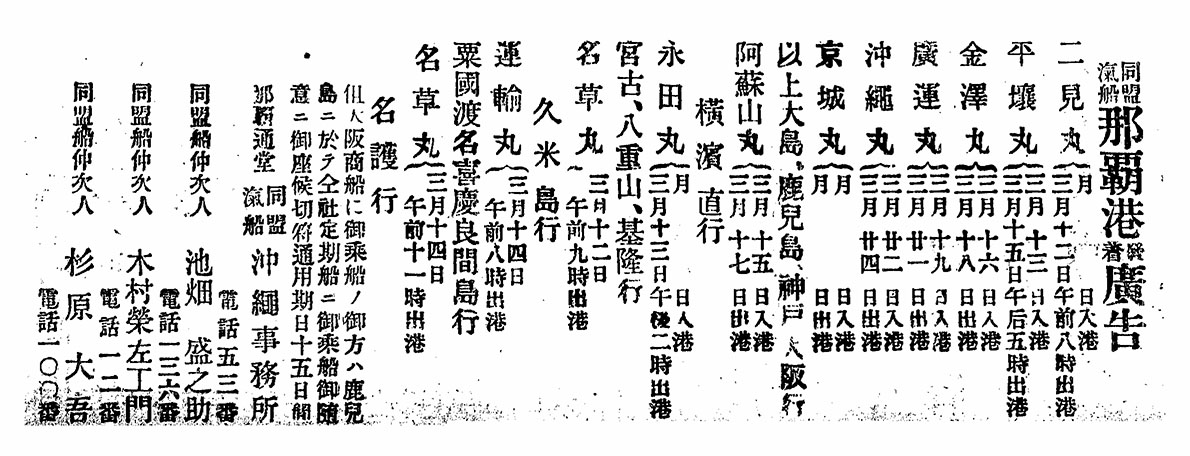 同盟滊船 那覇港發着廣告
二見丸 月 日入港
三月十二日午前八時出港
平壤丸 三月十三日入港
三月十五日午后五時出港
金澤丸 三月十六日入港
三月十八日出港
廣運丸 三月十九日入港
三月廿一日出港
沖繩丸 三月廿二日入港
三月廿四日出港
京城丸 月 日入港
月 日出港
以上大島、鹿兒島、神戸、大阪行
阿蘇山丸 三月十五日入港
三月十七日出港
橫濱直行
永田丸 月 日入港
三月十三日午後二時出港
宮古、八重山、基隆行
名草丸 三月十二日
午前九時出港
久米島行
運輸丸 三月十四日
午前八時出港
粟國渡名喜慶良間島行
名草丸 三月十四日
午前十一時出港
名護行
但大阪商船に御乘船ノ御方ハ鹿兒
島ニ於テ仝社定期船ニ御乘船御隨
意ニ御座候切符通用期日十五日間
那覇通堂 同盟滊船 沖繩事務所
電話五三番
同盟船仲次人 池畑盛之助
電話一三六番
同盟船仲次人 木村榮左工門
電話一二番
同盟船仲次人 杉原大吾
電話一〇〇番